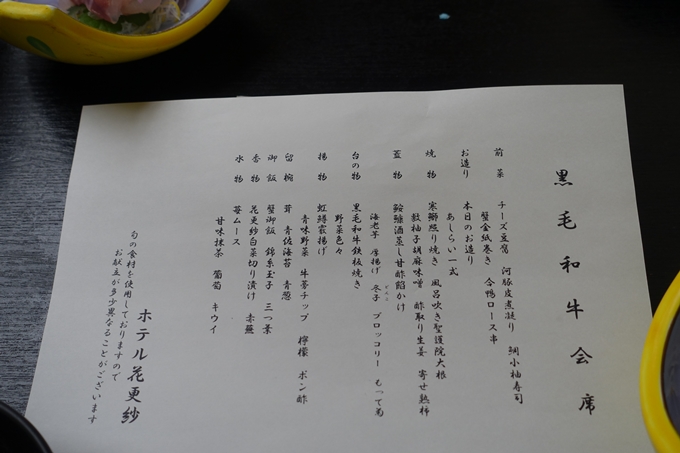 黒毛和牛会席
前菜 チーズ豆腐 河豚皮煮凝り 鯛小袖寿司
蟹金紙巻き 合鴨ロース串
お造り 本日のお造り
あしらい一式
焼物 寒鰤照り焼き 風呂吹き聖護院大根
敷柚子胡麻味噌 酢取り生姜 寄せ熟柿
蓋物 鮟鱇酒蒸し甘酢餡かけ
海老芋 唐揚げ 冬子 ブロッコリー もって菊
台の物 黒毛和牛鉄板焼き
野菜色々
揚物 虹鱒霰揚げ
青味野菜 牛蒡チップ 檸檬 ポン酢
留椀 茸 青佐海苔 青葱
御飯 蟹御飯 錦糸玉子 三つ葉
香物 花更紗白菜切り漬け 赤蕪
水物 苺ムース
甘味抹茶 葡萄 キウイ
ホテル花更紗
旬の食材を使用しておりますので
お献立が多少異なることがございます